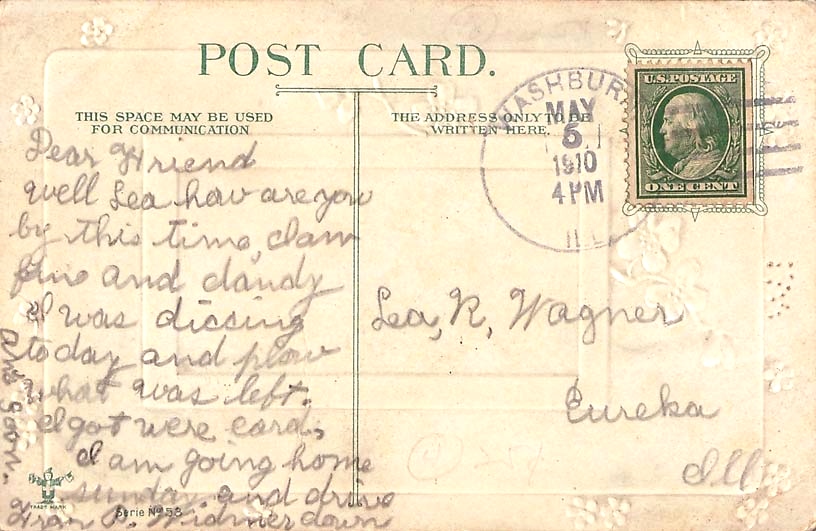 POST CARD.
THIS SPACE MAY BE USED
FOR COMMUNICATION
THE ADDRESS ONLY TO BE
WRITTEN HERE.
WASHBUR
MAY
6
1910
4 PM
ILL
U.S. POSTAGE
ONE CENT
Dear Friend
Well Lea how are you
by this time, I am
fine and dandy
I was discing
today and plow
what was left.
I got were card,
I am going home
sunday and drive
Fran P. Widmer down
Ans soon.
Lea, R, Wagner
Eureka
Ill
TRADE MARK
Serie No 53